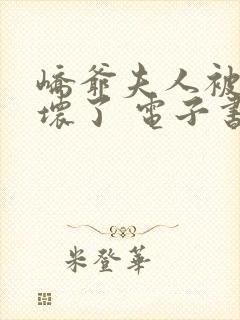 嶠爺夫人被
壞了 電子書
米登華